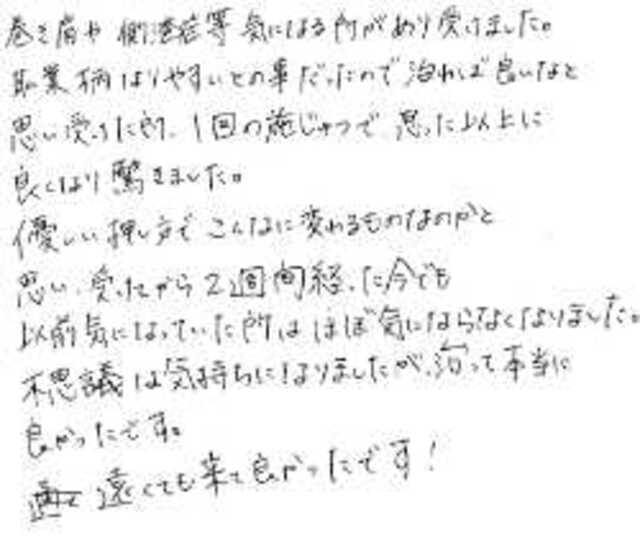 巻き肩や側湾症等気になる所があり受けました。
職業柄なりやすいとの事だったので治れば良いなと
思い受けた所、1回の施じゅつで思った以上に
良くなり驚きました。
優しい押し方でこんなに変わるものなのかと
思い、受けてから2週間経った今でも
以前気になっていた所はほぼ気にならなくなりました。
不思議な気持ちになりましたが、治って本当に
良かったです。
遠くても来て良かったです!